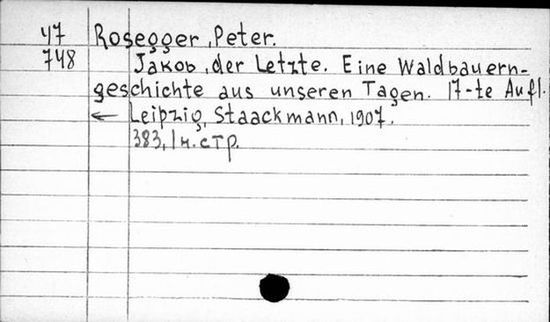 47 Rosegger, Peter.
748 Jakob, der Letzte. Eine Waldbauern-
geschichte aus unseren Tagen. 17-te Aufl.
← Leipzig, Staackmann, 1907.
383, 1 н. стр.